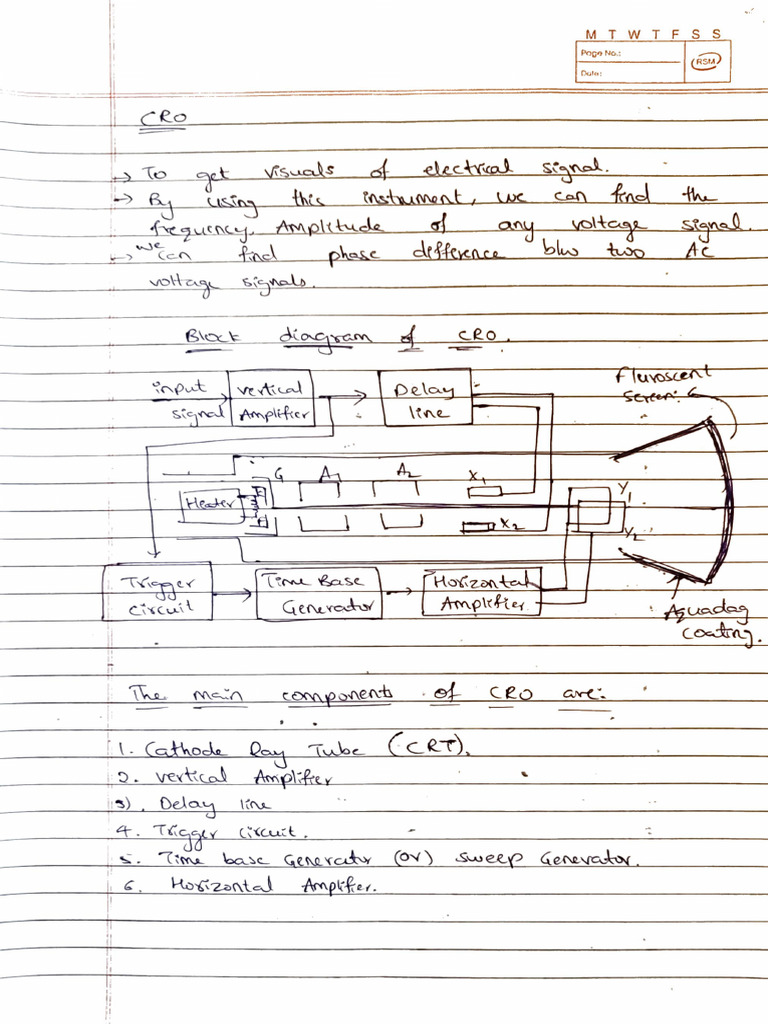 M T W T F S S
Page No.:
Date:
RSM
CRO
→ To get visuals of electrical signal.
→ By using this instrument, we can find the
frequency, Amplitude of any voltage signal.
→ we can find phase difference b/w two AC
voltage signals.
Block diagram of CRO.
input signal
vertical Amplifier
Delay line
Fluroscent screen.
G A1 A2 X1
Heater
X2
Y1
Y2
Trigger circuit
Time Base Generator
Horizontal Amplifier
Aquadag coating.
The main components of CRO are:
1. Cathode Ray Tube (CRT).
2. vertical Amplifier
3). Delay line
4. Trigger circuit.
5. Time base Generator (or) sweep Generator.
6. Horizontal Amplifier.